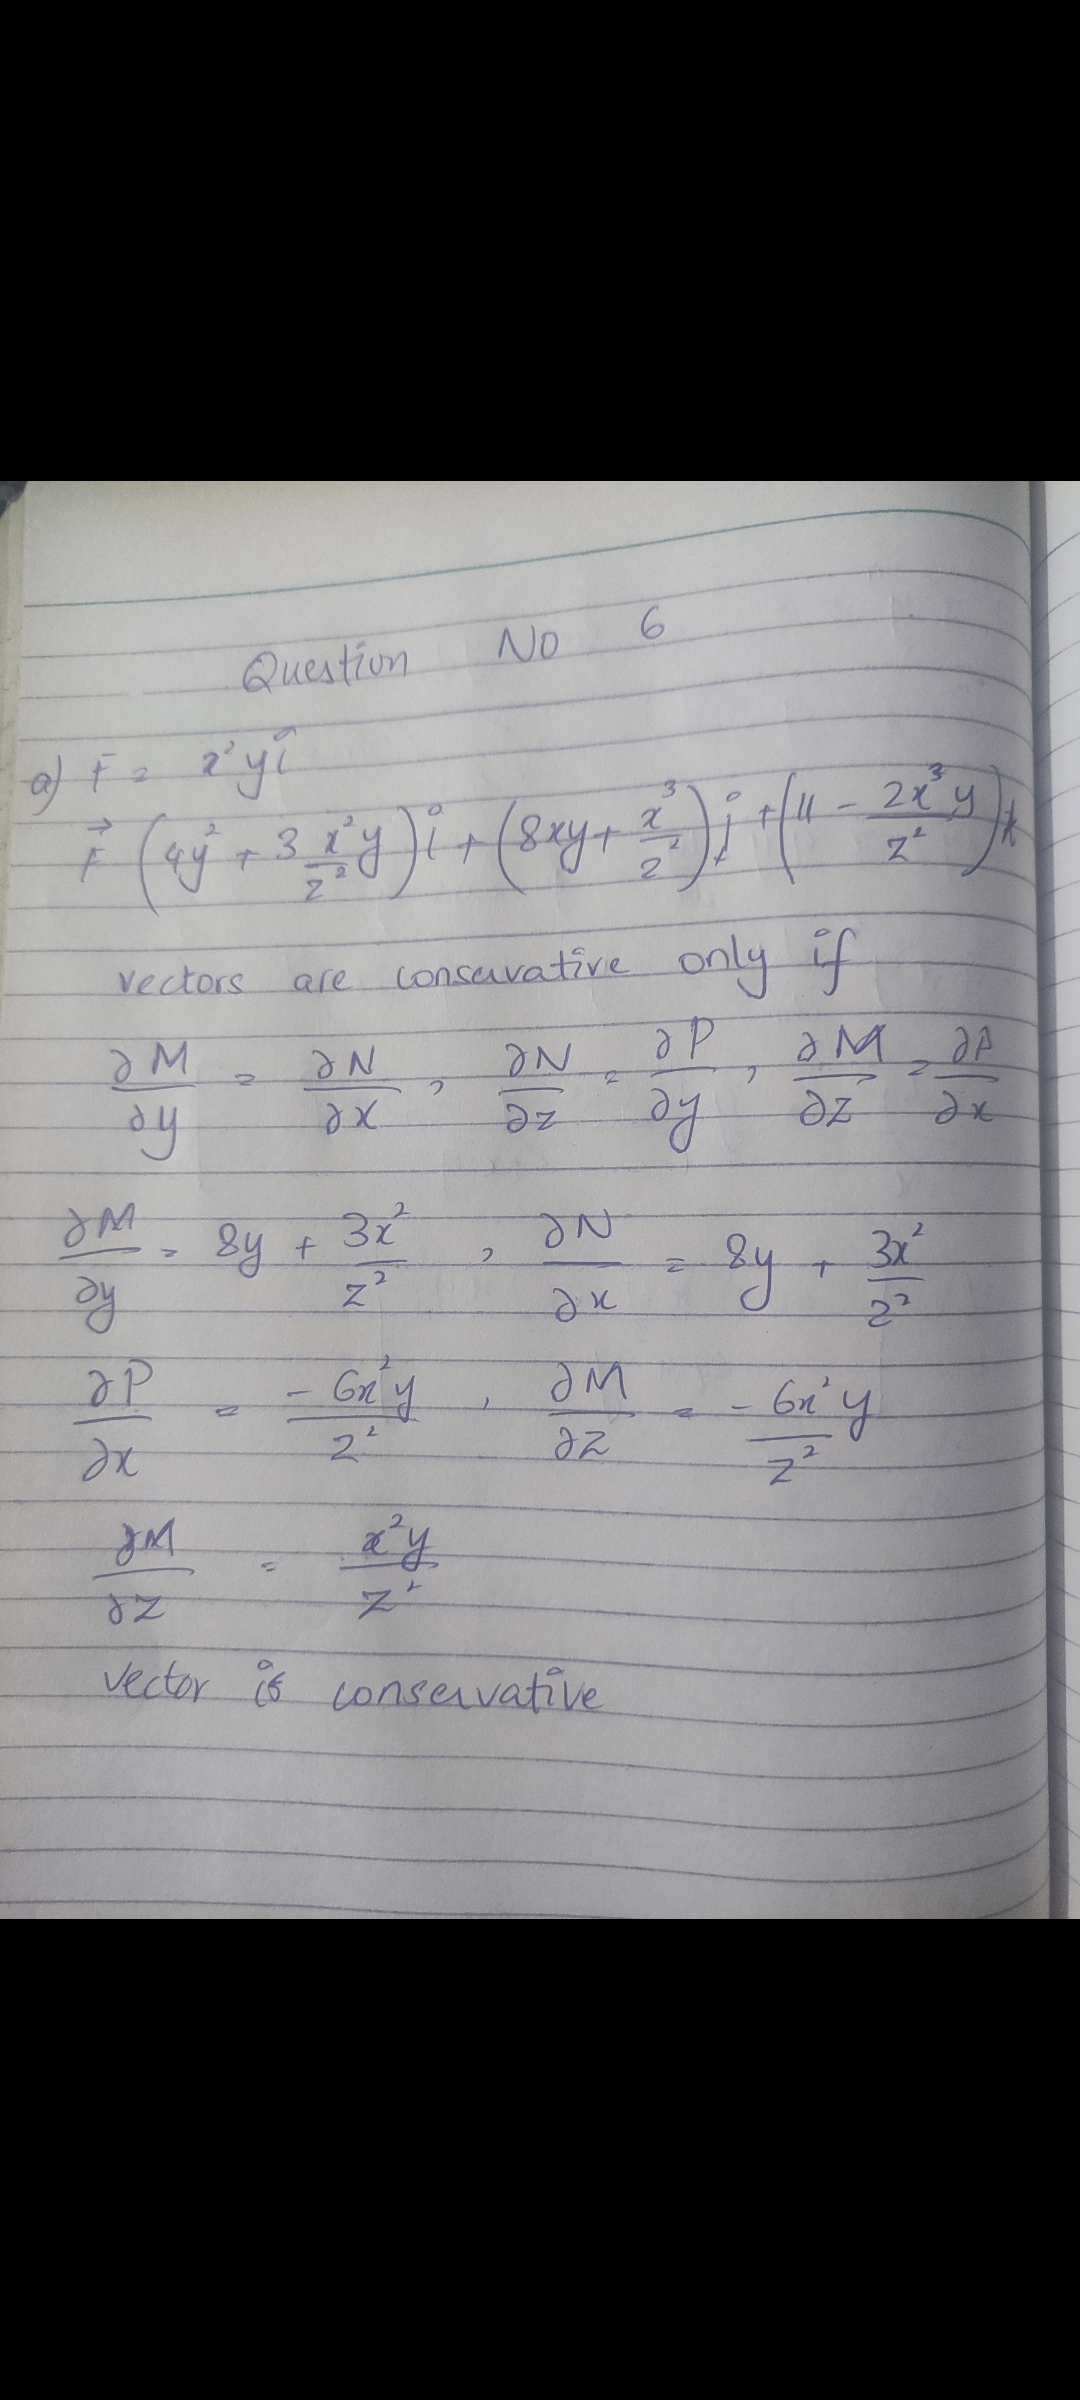 Question No 6
a) F = x²yî
F⃗ (4y² + 3x²y/z²)i + (8xy + x³/z²)j + (11 - 2x³y/z²)k
vectors are conservative only if
∂M/∂y = ∂N/∂x , ∂N/∂z = ∂P/∂y , ∂M/∂z = ∂P/∂x
∂M/∂y = 8y + 3x²/z² , ∂N/∂x = 8y + 3x²/z²
∂P/∂x = -6x²y/z² , ∂M/∂z = -6x²y/z²
∂M/∂z = x²y/z²
vector is conservative